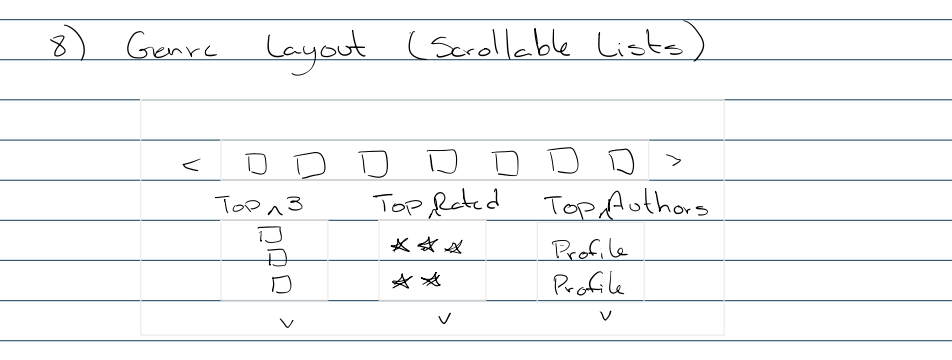 8) Genre Layout (Scrollable Lists)
< >
Top ^ 3 Top ^ Rated Top ^ Authors
Profile
Profile
v v v